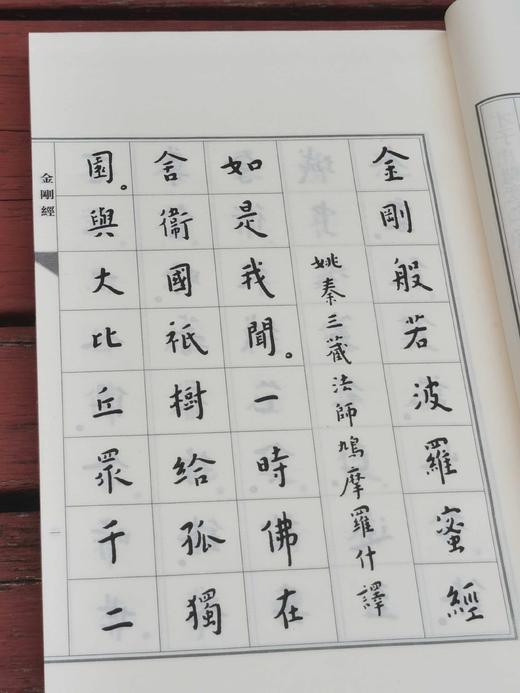 金剛般若波羅蜜經
姚秦三藏法師鳩摩羅什譯
如是我聞。一時佛在
舍衞國祇樹給孤獨
園。與大比丘眾千二
金剛經
一